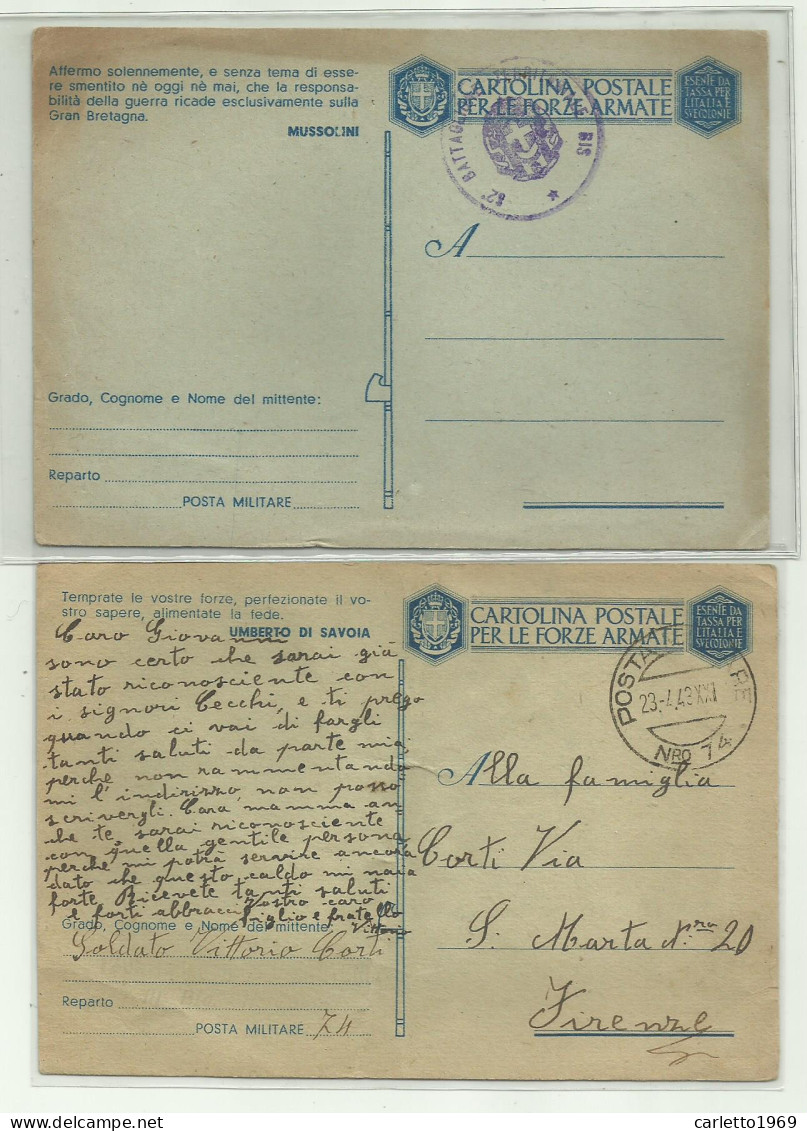 Affermo solennemente, e senza tema di esse-
re smentito nè oggi nè mai, che la responsa-
bilità della guerra ricade esclusivamente sulla
Gran Bretagna.
MUSSOLINI
CARTOLINA POSTALE
PER LE FORZE ARMATE
ESENTE DA
TASSA PER
L'ITALIA E
SUE COLONIE
82° BATTAGLIONE TERRITORIALE BIS
A
Grado, Cognome e Nome del mittente:
Reparto
POSTA MILITARE
Temprate le vostre forze, perfezionate il vo-
stro sapere, alimentate la fede.
UMBERTO DI SAVOIA
CARTOLINA POSTALE
PER LE FORZE ARMATE
ESENTE DA
TASSA PER
L'ITALIA E
SUE COLONIE
POSTA MILITARE
23.4.43 XXI
NRO 74
Caro Giovanni
sono certo che sarai già
stato riconosciente con
i signori Cecchi, e ti prego
quando ci vai di fargli
tanti saluti da parte mia
perche non rammentando
mi l'indirizzo, non posso
scrivergli. Cara mamma an-
che te sarai riconosciente
con quella gentile persona,
perche mi potrà servire ancora
dato che questo caldo mi
forte Ricevete tanti saluti
e forti abbracci Vostro caro
figlio e fratello
Vittorio
A
Alla famiglia
Corti Via
S. Marta Nro 20
Firenze
Grado, Cognome e Nome del mittente:
Soldato Vittorio Corti
Reparto
POSTA MILITARE 74
carletto1969